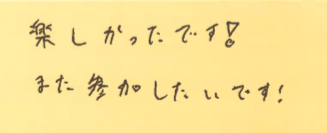 楽しかったです!
また参加したいです!